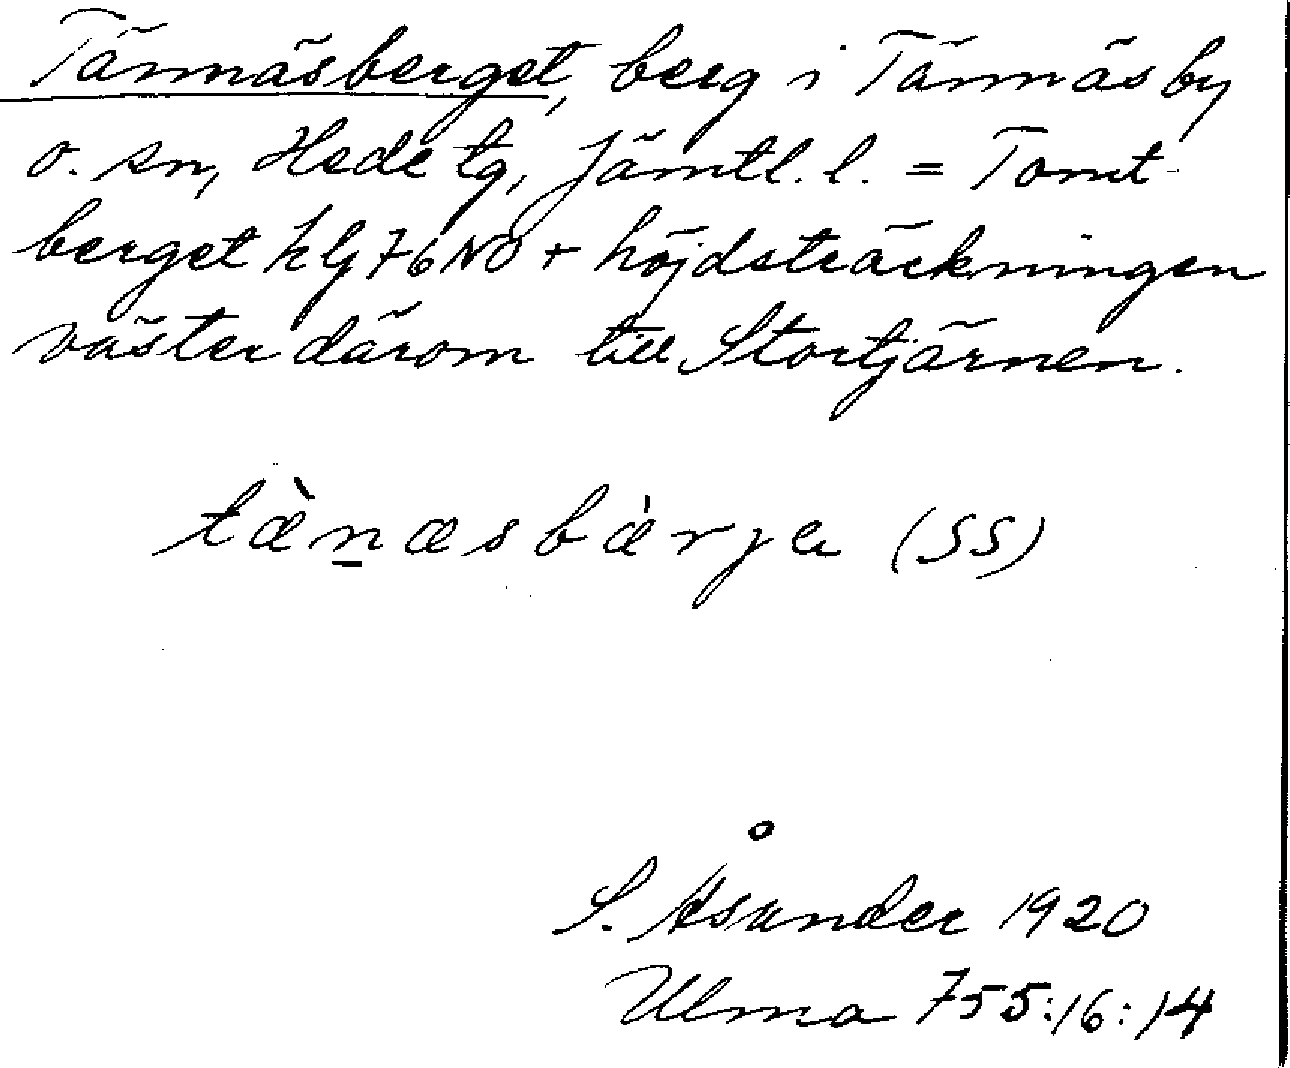 Tännäsberget, berg i Tännäs by
o. sn, Hede tg, Jämtl. l. = Tomt-
berget hlj 76 NO + höjdsträckningen
väster därom till Stortjärnen.
tæ̀n̲æsbæ̀rja (SS)
S. Åsander 1920
Ulma 755:16:14